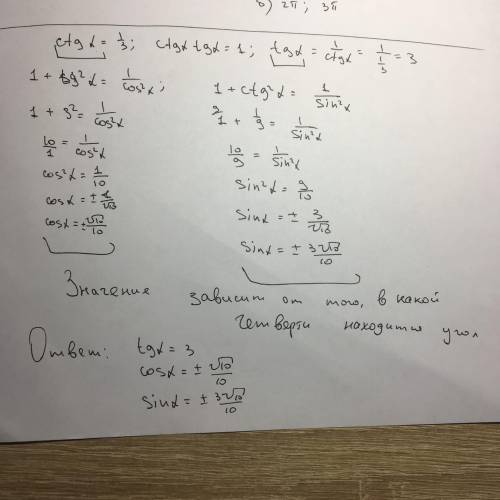 б) 2π ; 3π
ctgα = 1/3 ; ctgα tgα = 1 ; tgα = 1/ctgα = 1/(1/3) = 3
1 + tg²α = 1/cos²α ;
1 + 9² = 1/cos²α
10/1 = 1/cos²α
cos²α = 1/10
cosα = ± 1/√10
cosα = ± √10/10
1 + ctg²α = 1/sin²α
1 + 1/9 = 1/sin²α
10/9 = 1/sin²α
sin²α = 9/10
sinα = ± 3/√10
sinα = ± 3√10/10
Значение зависит от того, в какой
четверти находится угол
Ответ: tgα = 3
cosα = ± √10/10
sinα = ± 3√10/10